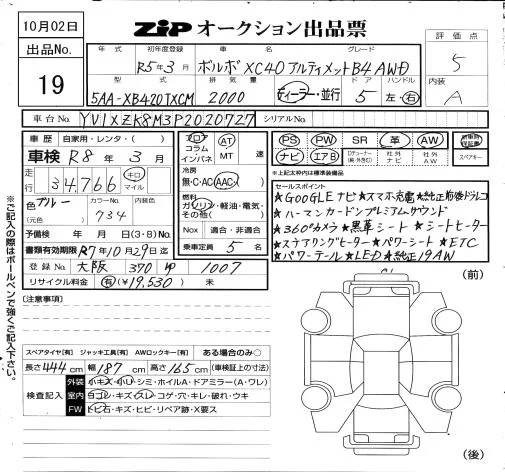 10月02日
ZIP オークション出品票
出品No.
19
年式 初年度登録 車名 グレード
R5年3月 ボルボ XC40 アルティメットB4 AWD
型式 排気量 ドア ハンドル
5AA-XB420TXCM 2000 ディーラー・並行 5 左・右
評価点
5
内装
A
車台No. YV1XZK8M3P2020727 シリアルNo.
車歴 自家用・レンタ・( )
車検 R8年3月
走行 34,766 キロ マイル
フロア コラム インパネ AT MT 速
冷房 無・C・AC・AAC
色 ブルー (元色) カラーNo. 734 内装色
燃料 ガソリン・軽油・電気・その他( )
予備検 年 月 日(3・8)No.
Nox 適合・非適合
書類有効期限 R7年10月29日迄
乗車定員 5名
登録No. 大阪 370 ゆ 1007
リサイクル料金 有(¥19,530) 未
PS PW SR 革 AW
ナビ エアB TVチューナー(純・外含む) 社外ナビ 社外AW
新車時保証書
スペアキー
※上記太枠内は標準装備品
セールスポイント
★GOOGLEナビ★スマホ充電★純正前後ドラレコ
★ハーマンカードンプレミアムサウンド
★360°カメラ★黒革シート★シートヒーター
★ステアリングヒーター★パワーシート★ETC
★パワーテール★LED★純正19AW
(注意事項)
スペアタイヤ[有] ジャッキ工具[有] AWロックキー[有] ある場合のみ○
長さ444cm 幅187cm 高さ165cm (車検証上の寸法)
検査記入
外装 小キズ・小U・シミ・ホイルA・ドアミラー(A・ワレ)
室内 ヨゴレ・キズ・スレ・コゲ・穴・キレ・破れ・ウキ
FW トビ石・キズ・ヒビ・リペア跡・X要ス
(前)
(後)
※ご記入の際はボールペンで強くご記入下さい。